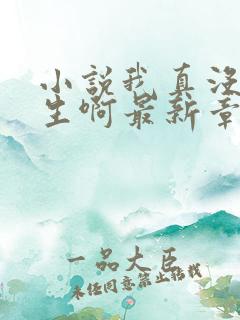 小説我真没
生啊最新章
一品大臣
未经同意禁止转载